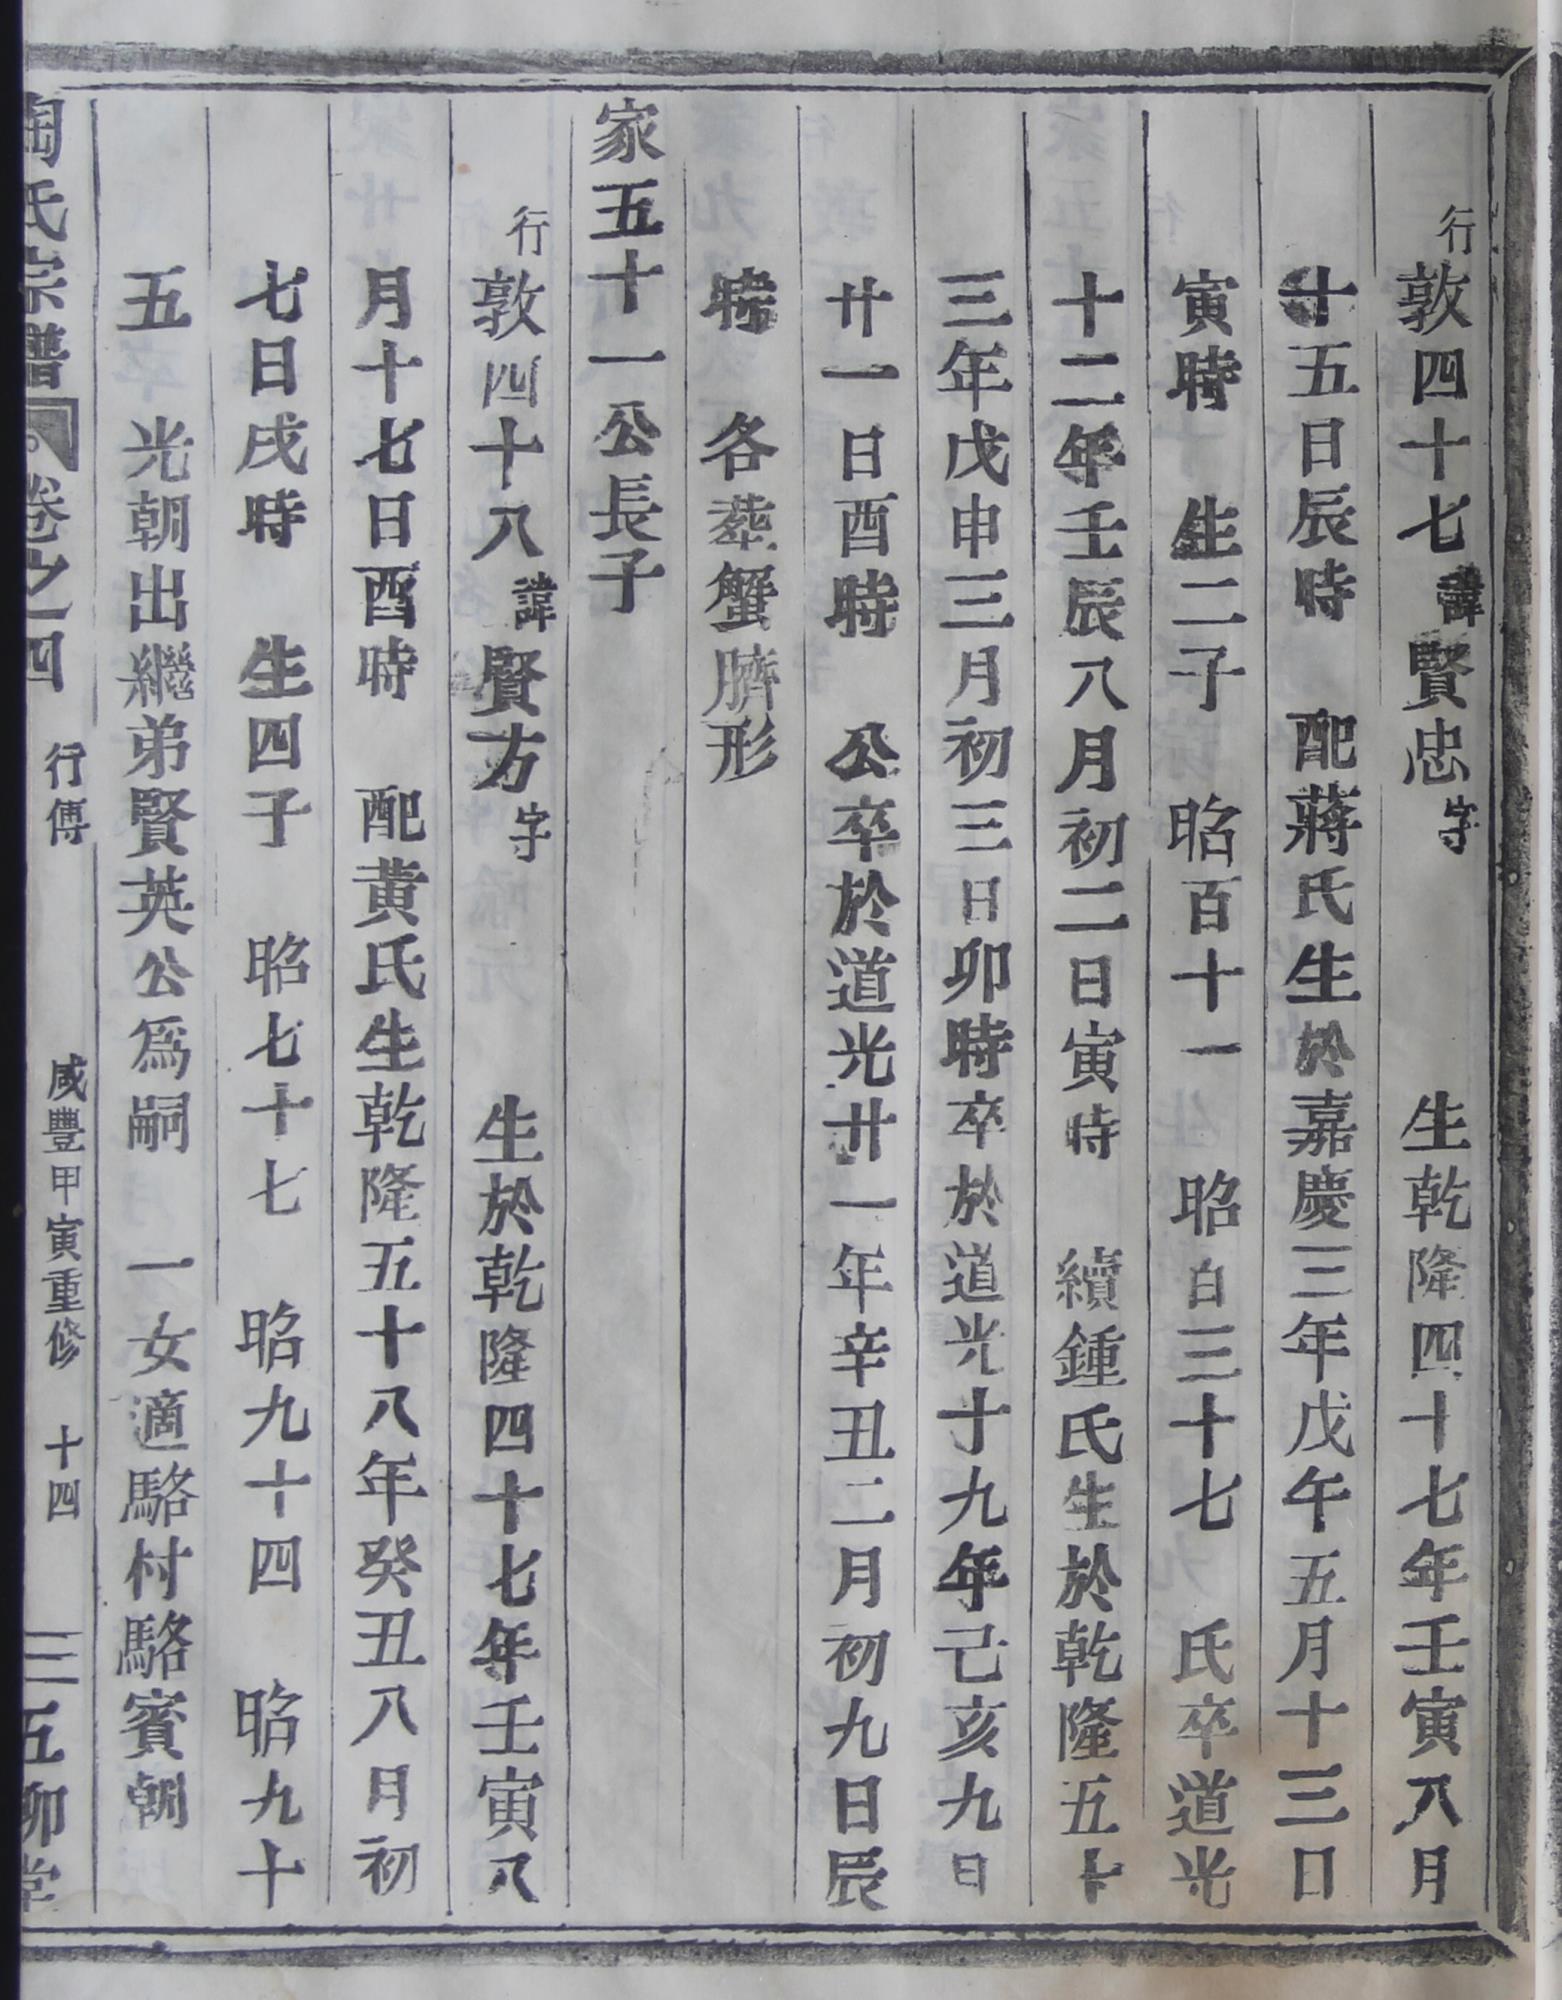 行敦四十七諱賢忠字 生乾隆四十七年壬寅八月
十五日辰時 配蔣氏生於嘉慶三年戊午五月十三日
寅時 生二子 昭百十一 昭白三十七 氏卒道光
十二年壬辰八月初二日寅時 續鍾氏生於乾隆五十
三年戊申三月初三日卯時卒於道光十九年己亥九日
廿一日酉時 公卒於道光廿一年辛丑二月初九日辰
時 各葬蟹臍形
家五十一公長子
行敦四十八諱賢方字 生於乾隆四十七年壬寅八
月十七日酉時 配黃氏生乾隆五十八年癸丑八月初
七日戌時 生四子 昭七十七 昭九十四 昭九十
五 光朝出繼弟賢英公爲嗣 一女適駱村駱賓朝
陶氏宗譜 卷之四 行傅 咸豐甲寅重修 十四 三五柳堂